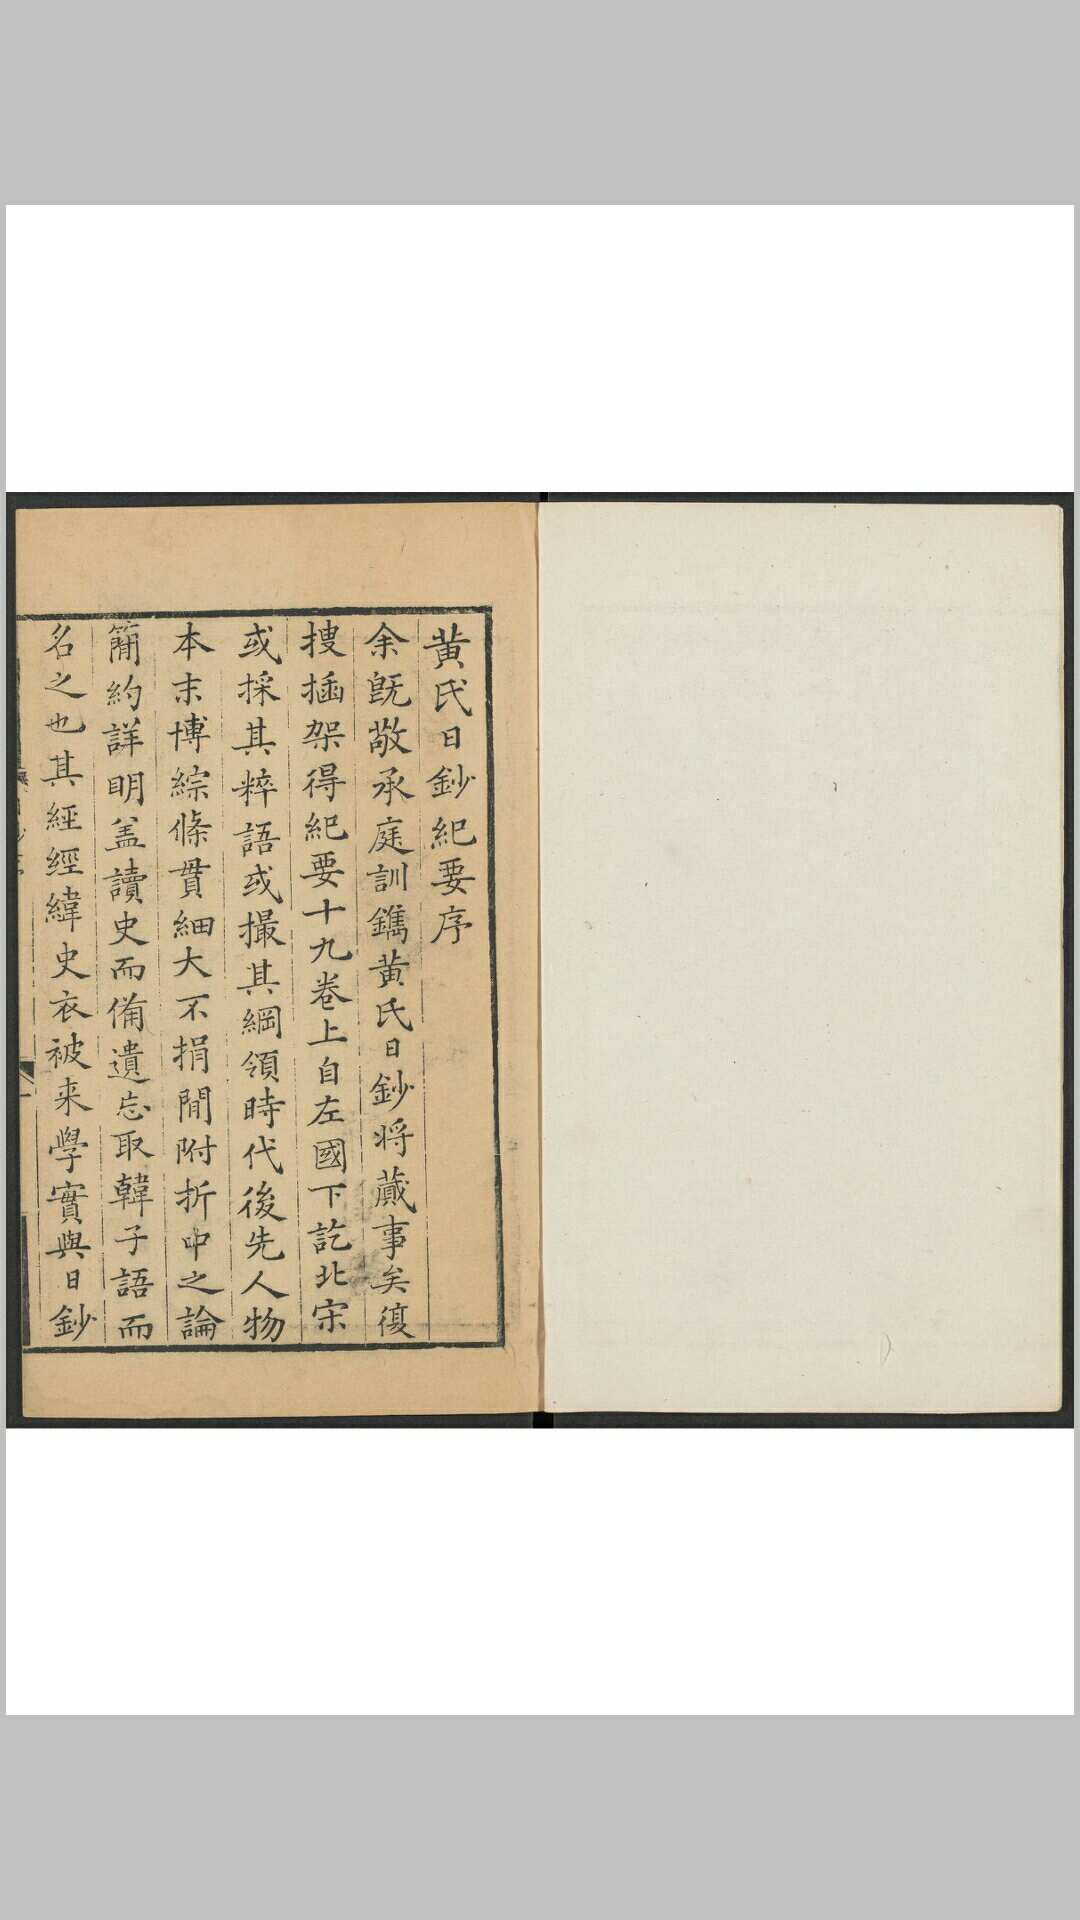 黄氏日鈔紀要序
余旣敬承庭訓鐫黄氏日鈔将蕆事矣復
搜插架得紀要十九卷上自左國下訖北宋
或採其粹語或撮其綱領時代後先人物
本末博綜條貫細大不捐閒附折中之論
簡約詳明盖讀史而備遺忘取韓子語而
名之也其經經緯史衣被来學實與日鈔